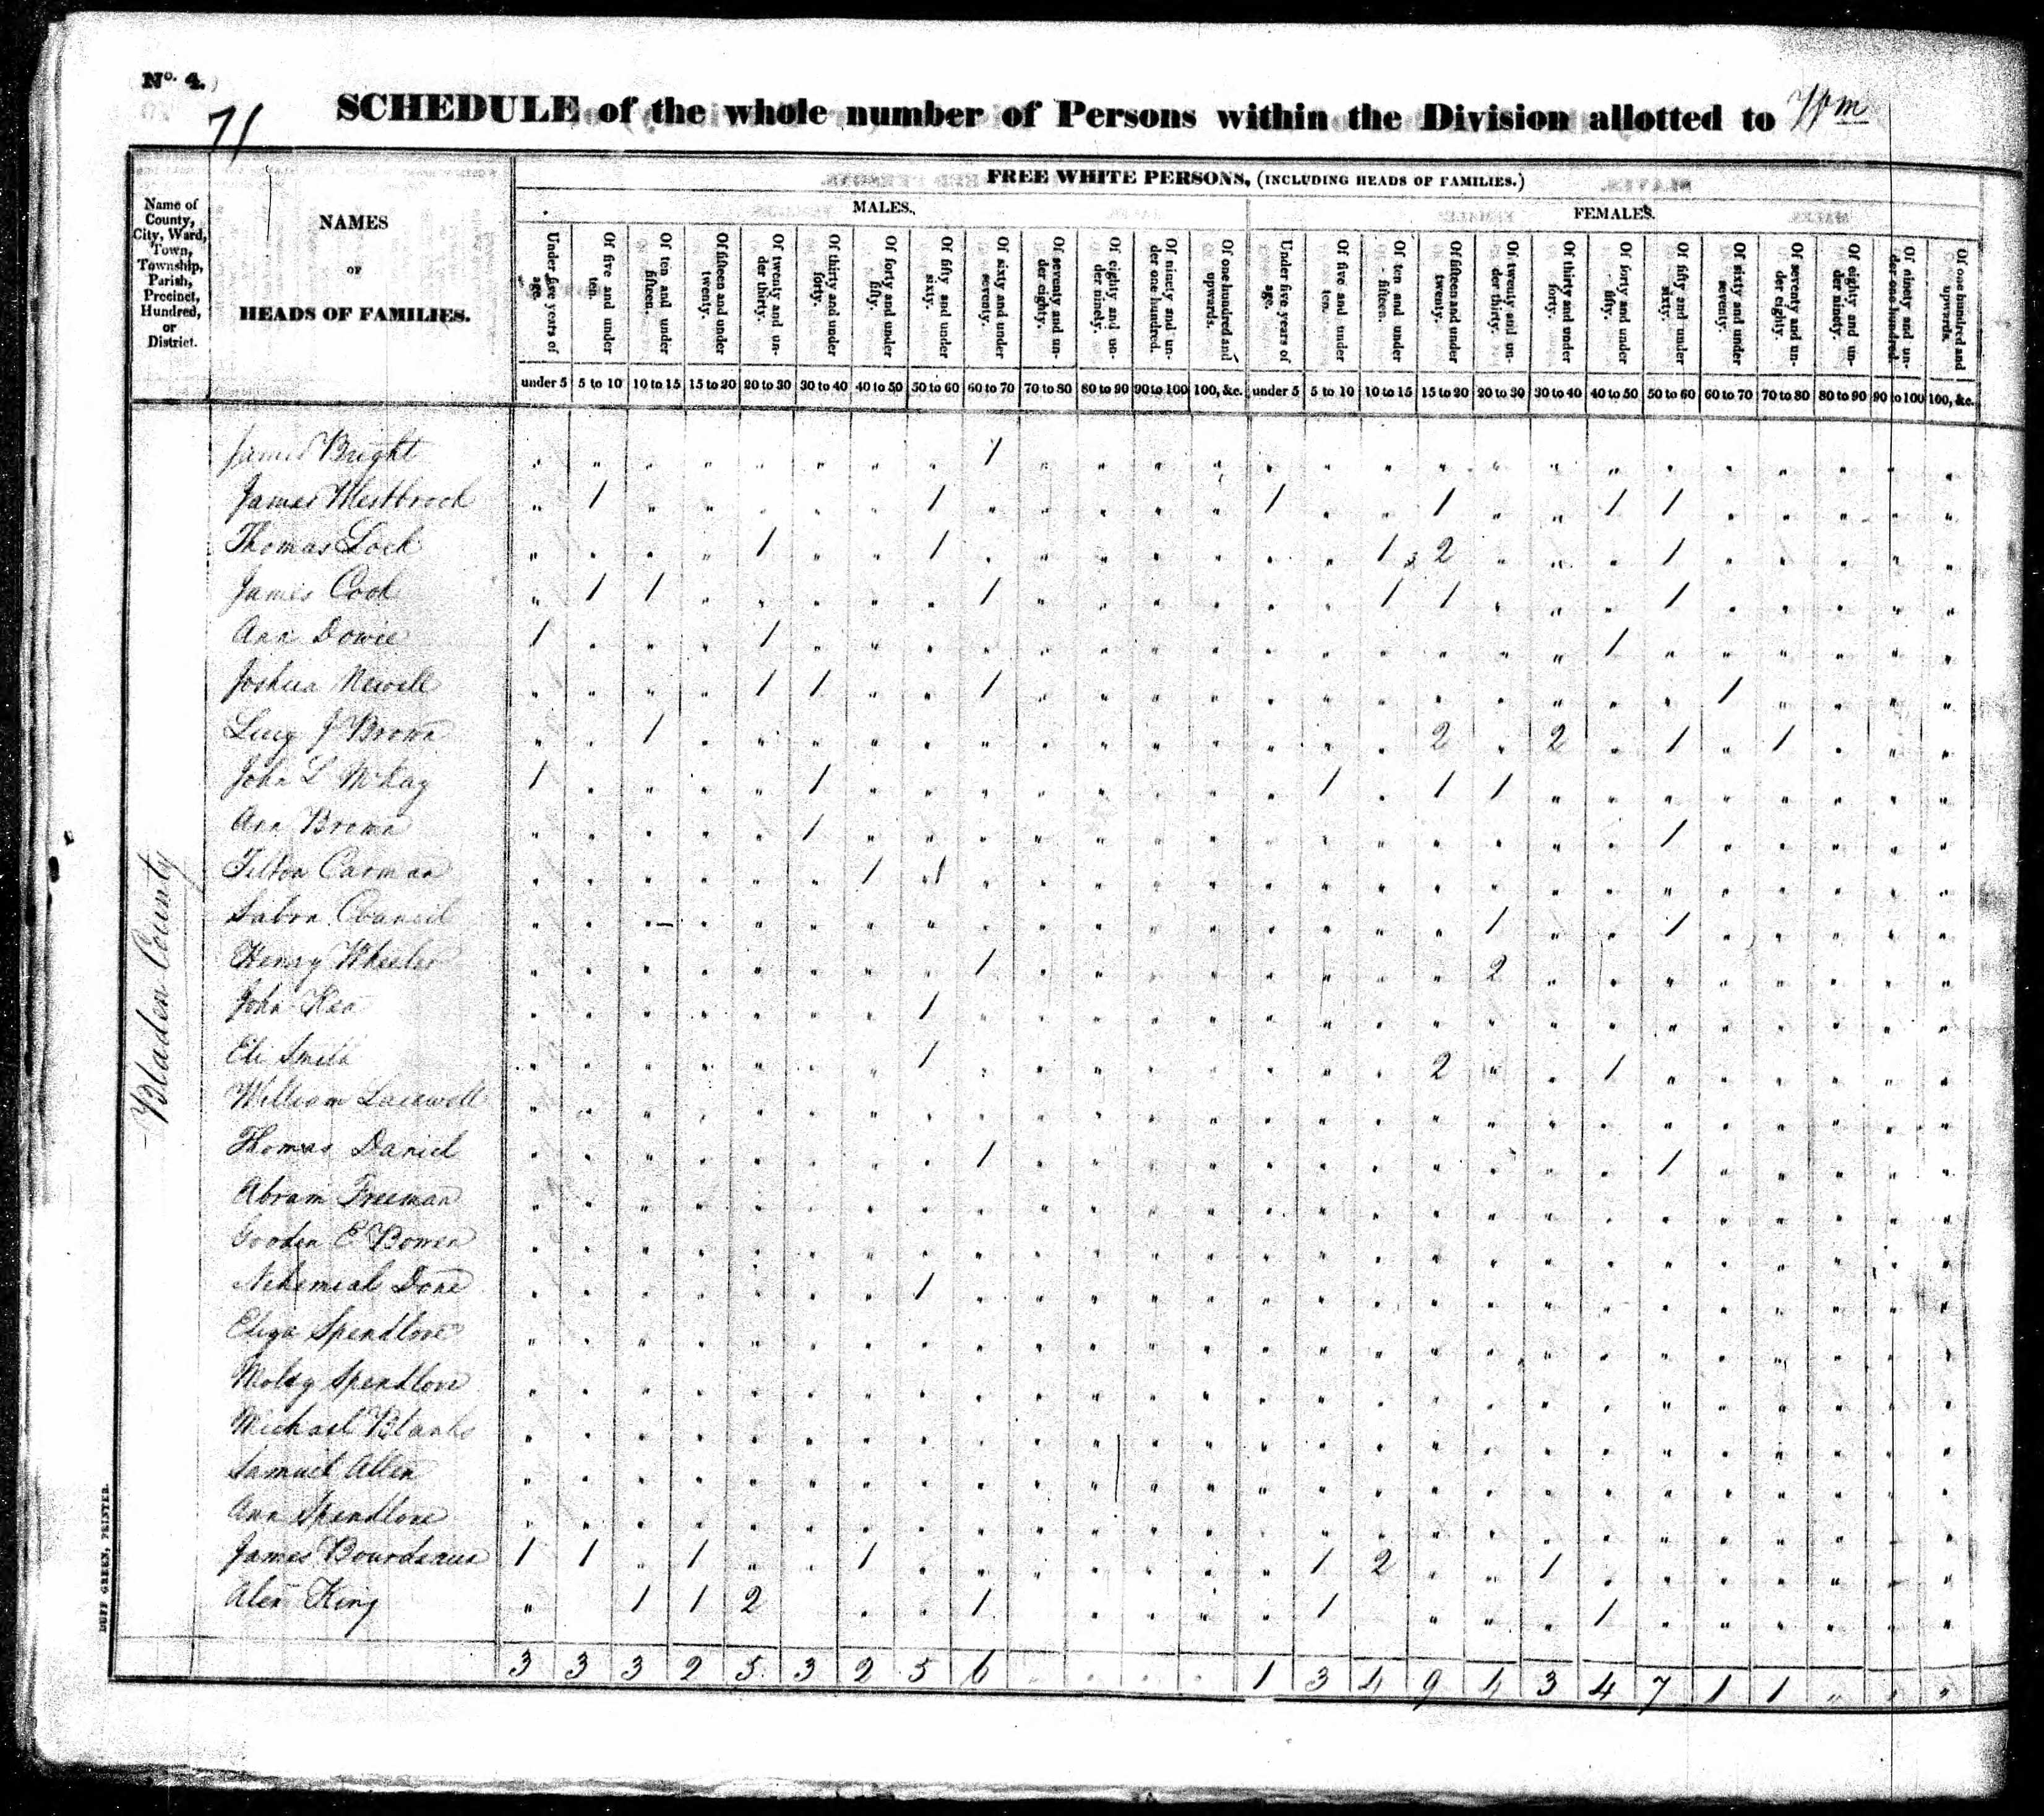 No. 4.
71
SCHEDULE of the whole number of Persons within the Division allotted to Wm
Name of County, City, Ward, Town, Township, Parish, Precinct, Hundred, or District.
NAMES OF HEADS OF FAMILIES.
FREE WHITE PERSONS, (INCLUDING HEADS OF FAMILIES.)
MALES.
FEMALES.
Under five years of age.
Of five and under ten.
Of ten and under fifteen.
Of fifteen and under twenty.
Of twenty and under thirty.
Of thirty and under forty.
Of forty and under fifty.
Of fifty and under sixty.
Of sixty and under seventy.
Of seventy and under eighty.
Of eighty and under ninety.
Of ninety and under one hundred.
Of one hundred and upwards.
Under five years of age.
Of five and under ten.
Of ten and under fifteen.
Of fifteen and under twenty.
Of twenty and under thirty.
Of thirty and under forty.
Of forty and under fifty.
Of fifty and under sixty.
Of sixty and under seventy.
Of seventy and under eighty.
Of eighty and under ninety.
Of ninety and under one hundred.
Of one hundred and upwards.
under 5 5 to 10 10 to 15 15 to 20 20 to 30 30 to 40 40 to 50 50 to 60 60 to 70 70 to 80 80 to 90 90 to 100 100, &c. under 5 5 to 10 10 to 15 15 to 20 20 to 30 30 to 40 40 to 50 50 to 60 60 to 70 70 to 80 80 to 90 90 to 100 100, &c.
Bladen County
James Bright 1
James Westbrook 1 1 1 1 1 1
Thomas Lock 1 1 1 2 1
James Cook 1 1 1 1 1 1
Ann Dowie 1 1 1
Joshua Newell 1 1 1 1
Lucy J Brown 1 2 2 1 1
John L McKay 1 1 1 1 1
Ann Brown 1 1
Tilton Carman 1 1
Sabra Council 1 1
Henry Wheeler 1 2
John Kea 1
Eli Smith 1 2 1
William
Thomas Daniel 1 1
Abram Freeman
Gooden E Bowen
Nehemiah Dove 1
Eliza Spendlove
Molsy Spendlove
Michael Blanks
Samuel Allen
Ann Spendlove
James Bourdeaux 1 1 1 1 1 2 1
Alex King 1 1 2 1 1 1
3 3 3 2 5 3 2 5 6 1 3 4 9 4 3 4 7 1 1
DUFF GREEN, PRINTER.